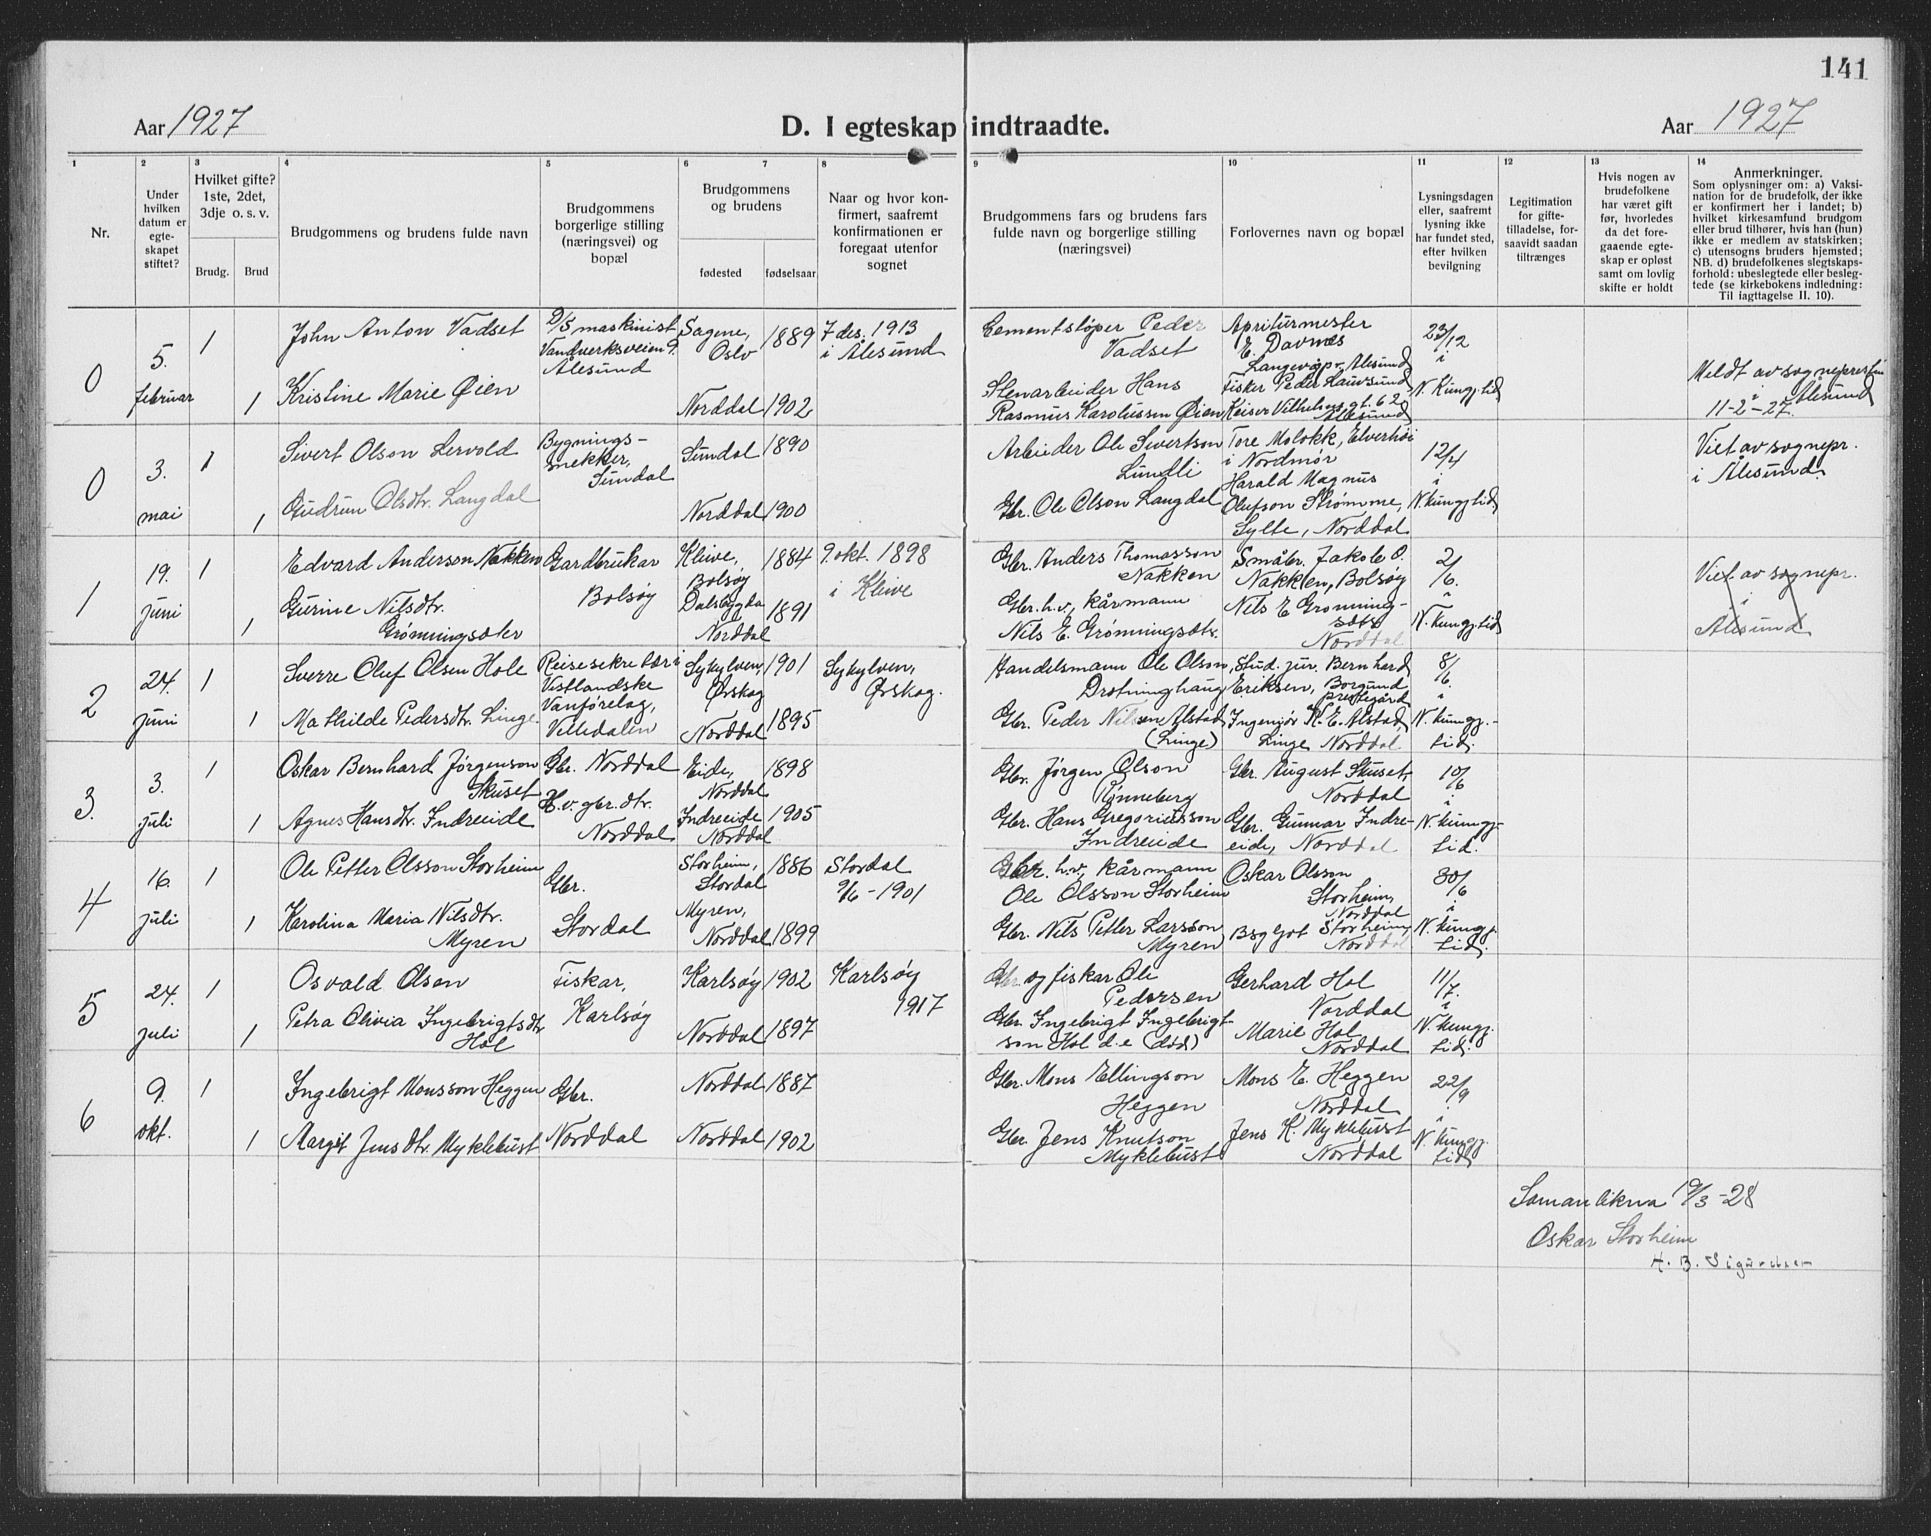 141
Aar 1927
D. I egteskap indtraadte.
Aar 1927
1
2
3
4
5
6
7
8
9
10
11
12
13
14
Nr.
Under
hvilken
datum er
egte-
skapet
stiftet?
Hvilket gifte?
1ste, 2det,
3dje o. s. v.
Brudg.
Brud
Brudgommens og brudens fulde navn
Brudgommens
borgerlige stilling
(næringsvei) og
bopæl
Brudgommens
og brudens
fødested
fødselsaar
Naar og hvor kon-
firmert, saafremt
konfirmationen er
foregaat utenfor
sognet
Brudgommens fars og brudens fars
fulde navn og borgerlige stilling
(næringsvei)
Forlovernes navn og bopæl
Lysningsdagen
eller, saafremt
lysning ikke
har fundet sted,
efter hvilken
bevilgning
Legitimation
for gifte-
tilladelse, for-
saavidt saadan
tiltrænges
Hvis nogen av
brudefolkene
har været gift
før, hvorledes
da det fore-
gaaende egte-
skap er opløst
samt om lovlig
skifte er holdt
Anmerkninger.
Som oplysninger om: a) Vaksi-
nation for de brudefolk, der ikke
er konfirmert her i landet; b)
hvilket kirkesamfund brudgom
eller brud tilhører, hvis han (hun)
ikke er medlem av statskirken;
c) utensogns bruders hjemsted;
NB. d) brudefolkenes slegtskaps-
forhold: ubeslegtede eller besleg-
tede (se kirkebokens indledning:
Til iagttagelse II. 10).
0
5.
februar
1
1
John Anton Vadset
Kristine Marie Øien
D/S maskinist
Vandverksveien 9.
Ålesund
Sagene,
Oslo
1889
Norddal
1902
7 des. 1913
i Ålesund
Cementstøper Peder
Vadset
Stenarbeider Hans
Rasmus Karolussen Øien
E. Davnes
Langevågpr. Ålesund
Fisker Peder Lauvsund
Keiser Vilhelms gt. 62
Ålesund
23/12
i
N. Kungj.tid
Meldt av sognepresten
i Ålesund
11-2-27.
0
3.
mai
1
1
Sivert Olson Lervold
Gudrun Olsdtr. Langdal
Bygnings-
snekker,
Sundal
Sundal
1890
Norddal
1900
Arbeider Ole Sivertson
Lundli
Gbr. Ole Olson Langdal
Tore Molokk, Elverhøi
i Nordmør
Harald Magnus
Olufson Strømme,
Sylte, Norddal
12/4
i
N. kungj.tid
Viet av sognepr.
i Ålesund.
1
19.
juni
1
1
Edvard Anderson Nakken
Gurine Nilsdtr.
Grønningsæter
Gardbrukar
Bolsøy
Kleive,
Bolsøy
1884
Dalsbygda
Norddal
1891
9. okt. 1898
i Kleive
Gbr. Anders Thomasson
Nakken
Gbr. h.v., kårmann
Nils E. Grønningsætr.
Småbr. Jakob O.
Nakken, Bolsøy
Nils E Grønning-
sætr
Norddal
2/6.
i
N. kungj.tid
Viet av sognepr.
i
Ålesund
2
24.
juni
1
1
Sverre Oluf Olsen Hole
Mathilde Pedersdtr. Linge.
Reisesekretær i
Vestlandske
Vanførelag,
Velledalen
Sykylven,
Ørskog
1901
Norddal
1895
Sykylven,
Ørskog.
Handelsmann Ole Olson,
Drotninghaug
Gbr. Peder Nilsen Alstad
(Linge)
Stud. jur. Bernhard
Eriksen, Borgund
prestegård
Ingeniør K. E. Alstad,
Linge Norddal
8/6.
i
N. kungj.-
tid.
3.
3.
juli
1
1
Oskar Bernhard Jørgenson
Skuset
Agnes Hansdtr. Indreeide
Gbr. Norddal
H.v. gbr.dtr.
Norddal
Eide,
Norddal
1898
Indreeide
Norddal
1905
Gbr. Jørgen Olson
Rønneberg
Gbr. Hans Gregoriusson
Indreeide
Gbr. August Skuset,
Norddal
Gbr. Gunnar Indre-
eide, Norddal
10/6
i
N. kungj.-
tid.
4
16.
juli
1
1
Ole Petter Olsson Storheim
Karolina Maria Nilsdtr.
Myren
Gbr.
Stordal
Storheim,
Stordal
1886
Myren,
Norddal
1899
Stordal
9/6-1901
Gbr. h.v., kårmann
Ole Olsson Storheim
Gbr. Nils Petter Larsson
Myren
Oskar Olsson
Storheim,
Norddal
Storheim,
Norddal
30/6
i
N. kungj.
tid.
5
24.
juli
1
1
Osvald Olsen
Petra Olivia Ingebrigtsdtr
Hol
Fiskar,
Karlsøy
Karlsøy
1902
Norddal
1897
Karlsøy
1917
Gbr. og fiskar Ole
Pedersen
Gbr. Ingebrigt Ingebrigt-
son Hol d.e (død)
Gerhard Hol
Norddal
Marie Hol
Norddal
11/7.
i
N. kungj.
tid.
6
9.
okt.
1
1
Ingebrigt Monsson Heggen
Margit Jensdtr. Myklebust
Gbr.
Norddal
Norddal
1887
Norddal
1902
Gbr. Mons Ellingson
Heggen
Gbr. Jens Knutson
Myklebust
Mons E. Heggen
Norddal
Jens K. Myklebust
Norddal
22/9
i
N. kungj.
tid
Samanlikna 19/3-28
Oskar Storheim
H. B. Sigurdsen